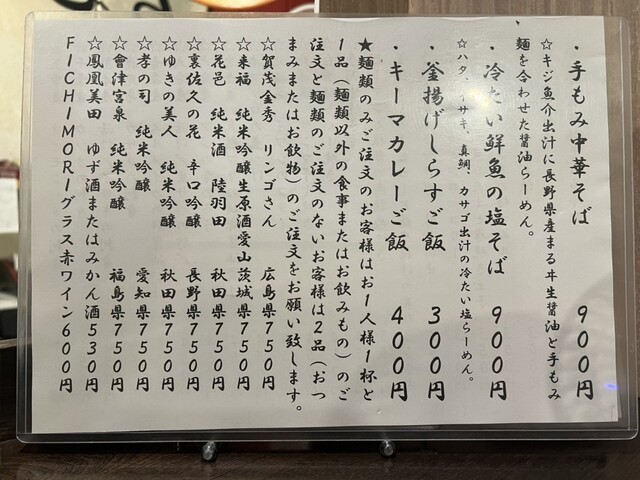 ・手もみ中華そば 900円
☆キジ魚介出汁に長野県産まるヰ生醤油と手もみ
麺を合わせた醤油らーめん。
・冷たい鮮魚の塩そば 900円
☆ハタ、イサキ、真鯛、カサゴ出汁の冷たい塩らーめん。
・釜揚げしらすご飯 300円
・キーマカレーご飯 400円
★麺類のみご注文のお客様はお1人様1杯と
1品(麺類以外の食事またはお飲みもの)のご
注文と麺類のご注文のないお客様は2品(おつ
まみまたはお飲物)のご注文をお願い致します。
☆賀茂金秀 リンゴさん 広島県750円
☆来福 純米吟醸生原酒愛山茨城県750円
☆花邑 純米酒 陸羽田 秋田県750円
☆裏佐久の花 辛口吟醸 長野県750円
☆ゆきの美人 純米吟醸 秋田県750円
☆孝の司 純米吟醸 愛知県750円
☆會津宮泉 純米吟醸 福島県750円
☆鳳凰美田 ゆず酒またはみかん酒530円
FICHIMORIグラス赤ワイン600円